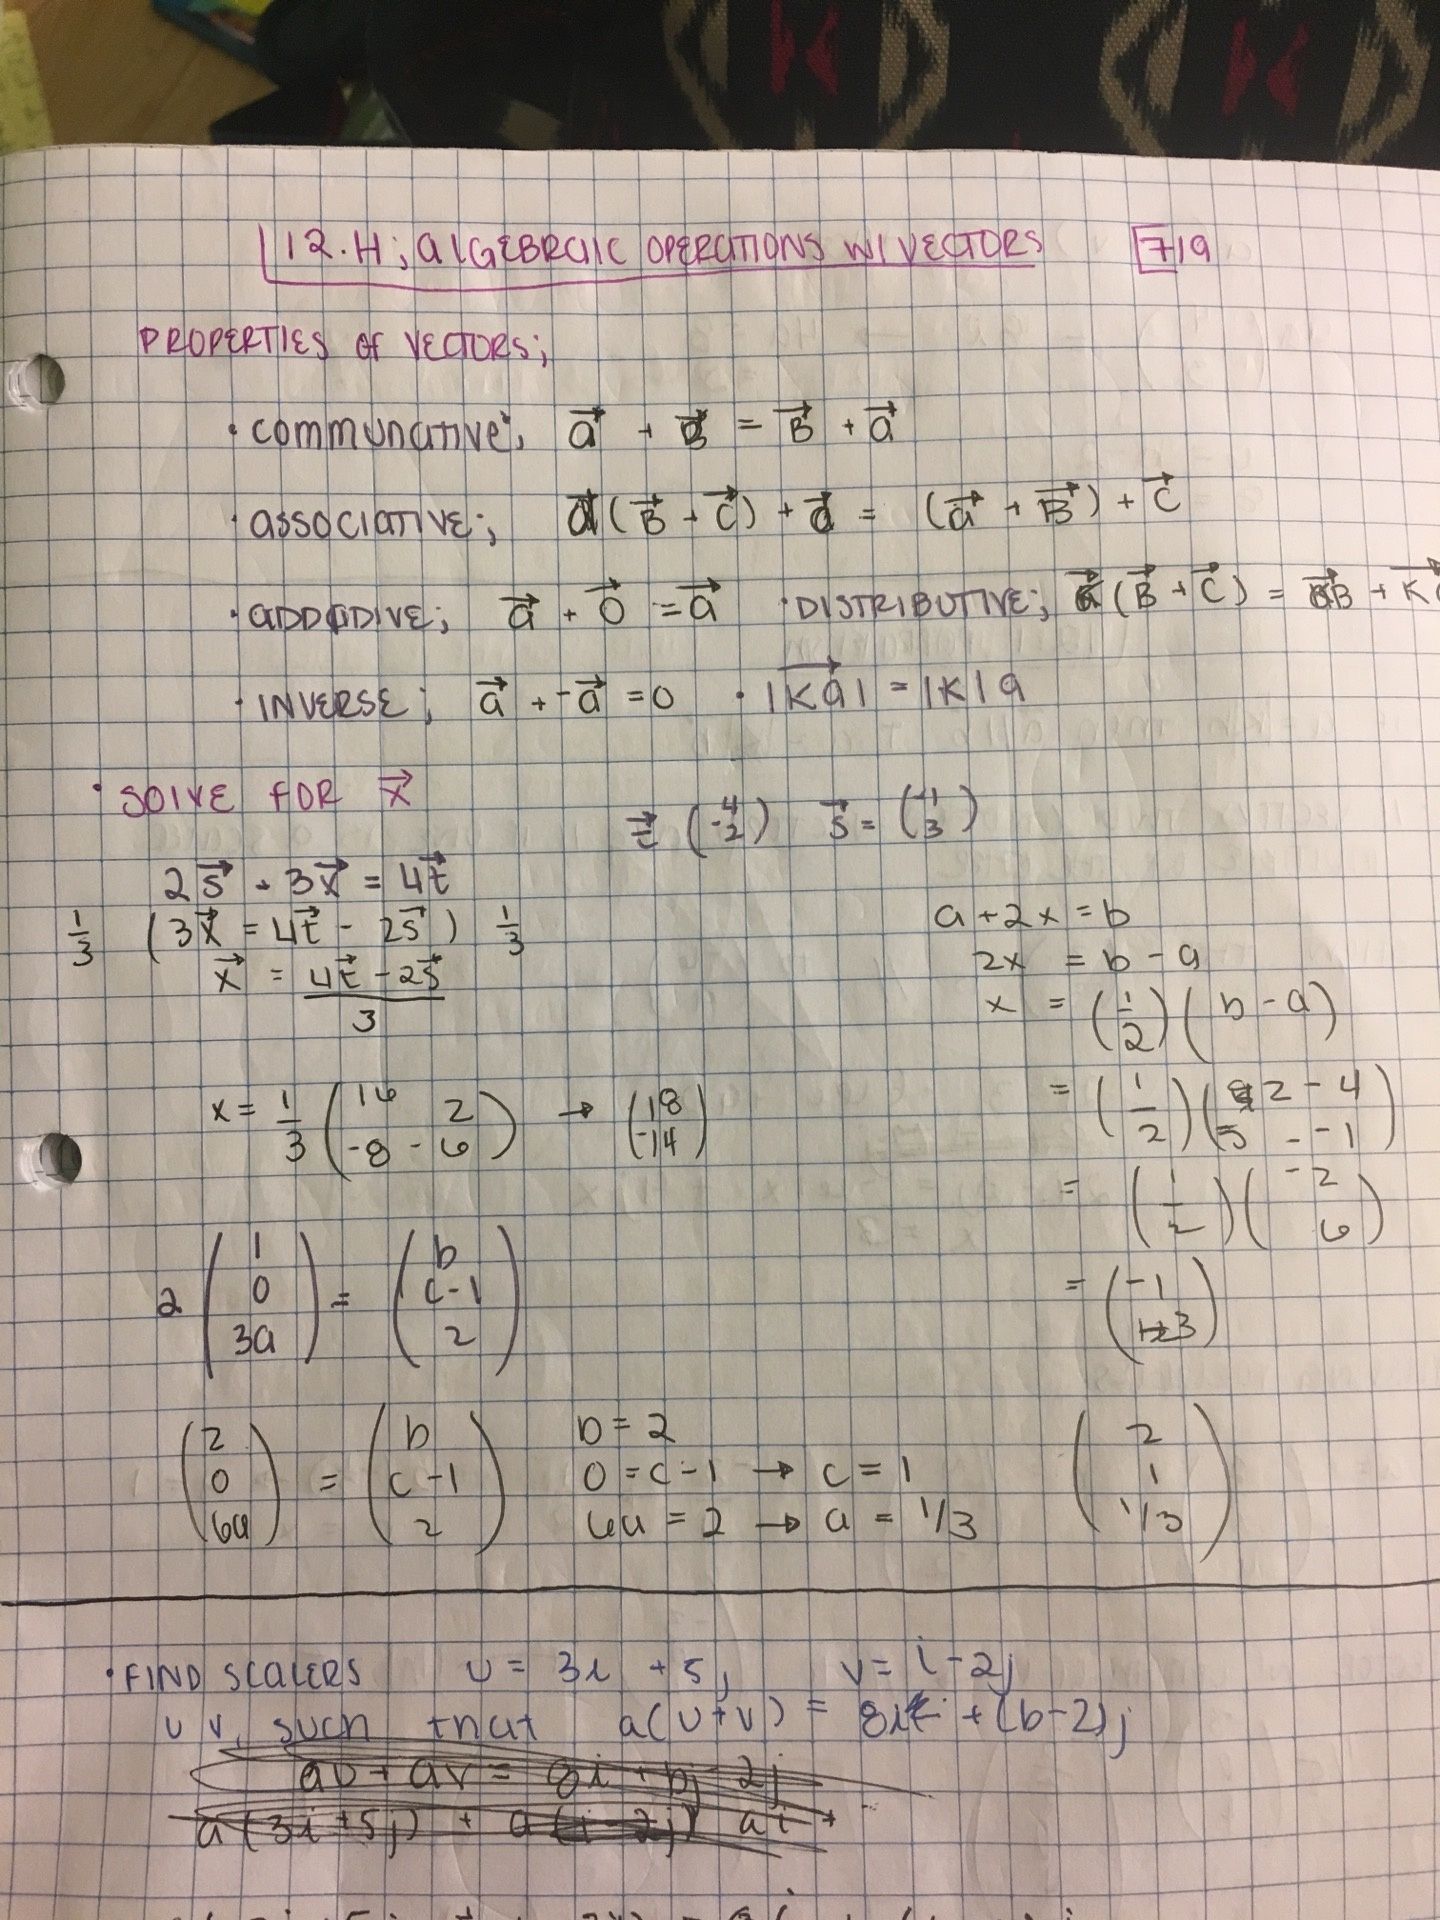 12.H; ALGEBRAIC OPERATIONS W/ VECTORS 7/9
PROPERTIES OF VECTORS;
· COMMUNATIVE; a⃗ + B⃗ = B⃗ + a⃗
· ASSOCIATIVE; (B⃗ + C⃗) + a⃗ = (a⃗ + B⃗) + C⃗
· ADDADIVE; a⃗ + 0⃗ = a⃗ · DISTRIBUTIVE; (B⃗ + C⃗) = B + K
· INVERSE; a⃗ + -a⃗ = 0 · |Ka⃗| = |K|a
· SOLVE FOR x⃗
t⃗ = (4 -2) s⃗ = (-1 3)
2s⃗ + 3x⃗ = 4t⃗
1/3 (3x⃗ = 4t⃗ - 2s⃗) 1/3
x⃗ = 4t⃗ - 2s⃗
3
x = 1/3 (16 2 → (18
-8 - 6) -14)
a + 2x = b
2x = b - a
x = (1/2)(b - a)
= (1/2)(2 - 4
5 - -1)
= (1/2)(-2
6)
= (-1
3)
2 (1 = (b
0 c-1
3a) 2)
(2 = (b b = 2 (2
0 c-1 0 = c-1 → c = 1 1
6a) 2) 6a = 2 → a = 1/3 1/3)
· FIND SCALERS u = 3i + 5j v = i - 2j
u v, such that a(u+v) = 8i + (b-2)j
au + av = 8i + bj - 2j
a(3i+5j) + a(i-2j) ai +